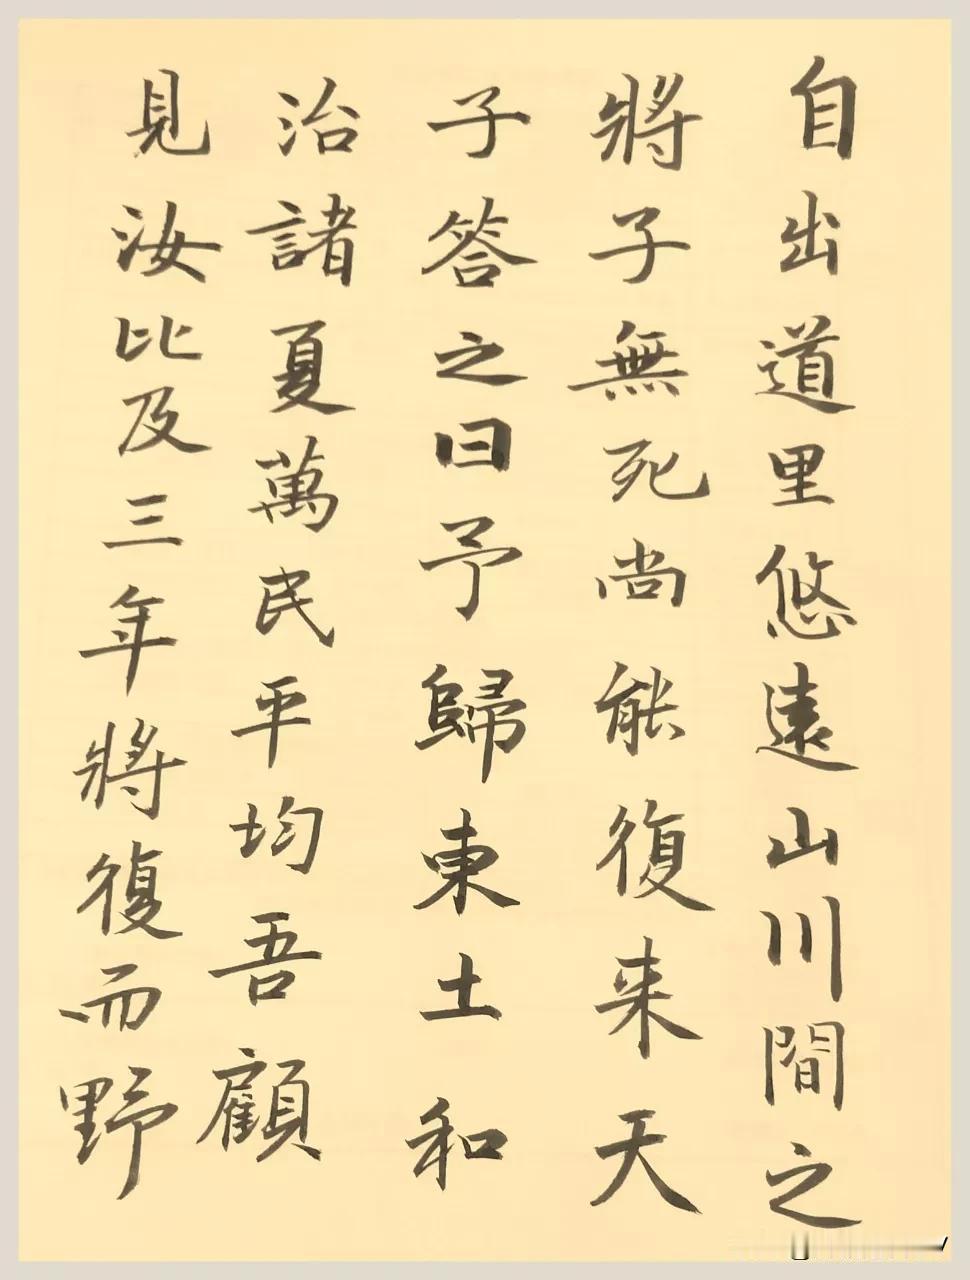 自出道里悠遠山川間之
將子無死尚能復来天
子答之曰予歸東土和
治諸夏萬民平均吾顧
見汝比及三年將復而野